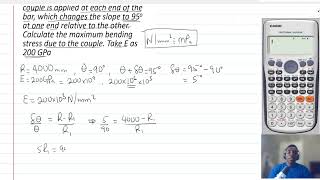 couple is applied at each end of the
bar, which changes the slope to 95°
at one end relative to the other.
Calculate the maximum bending
stress due to the couple. Take E as
200 GPa
N/mm² = MPa
R = 4000mm, θ = 90°, θ + δθ = 95° δθ = 95° - 90°
= 5°
E = 200GPa = 200×10⁹
E = 200×10³ N/mm²
δθ/θ = R - R₁/R₁ ⇒ 5/90 = 4000 - R₁/R₁
5R₁ = 90
CASIO